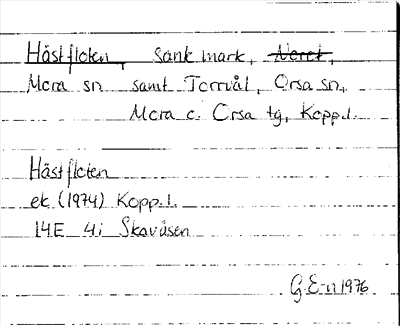 Hästfloten, Sänk mark, Noret,
Mora sn samt Torrvål, Orsa sn,
Mora o. Orsa tg, Kopp.l.
Hästfloten
ek (1974) Kopp.l.
14E 4i Skavåsen
G.E-n 1976